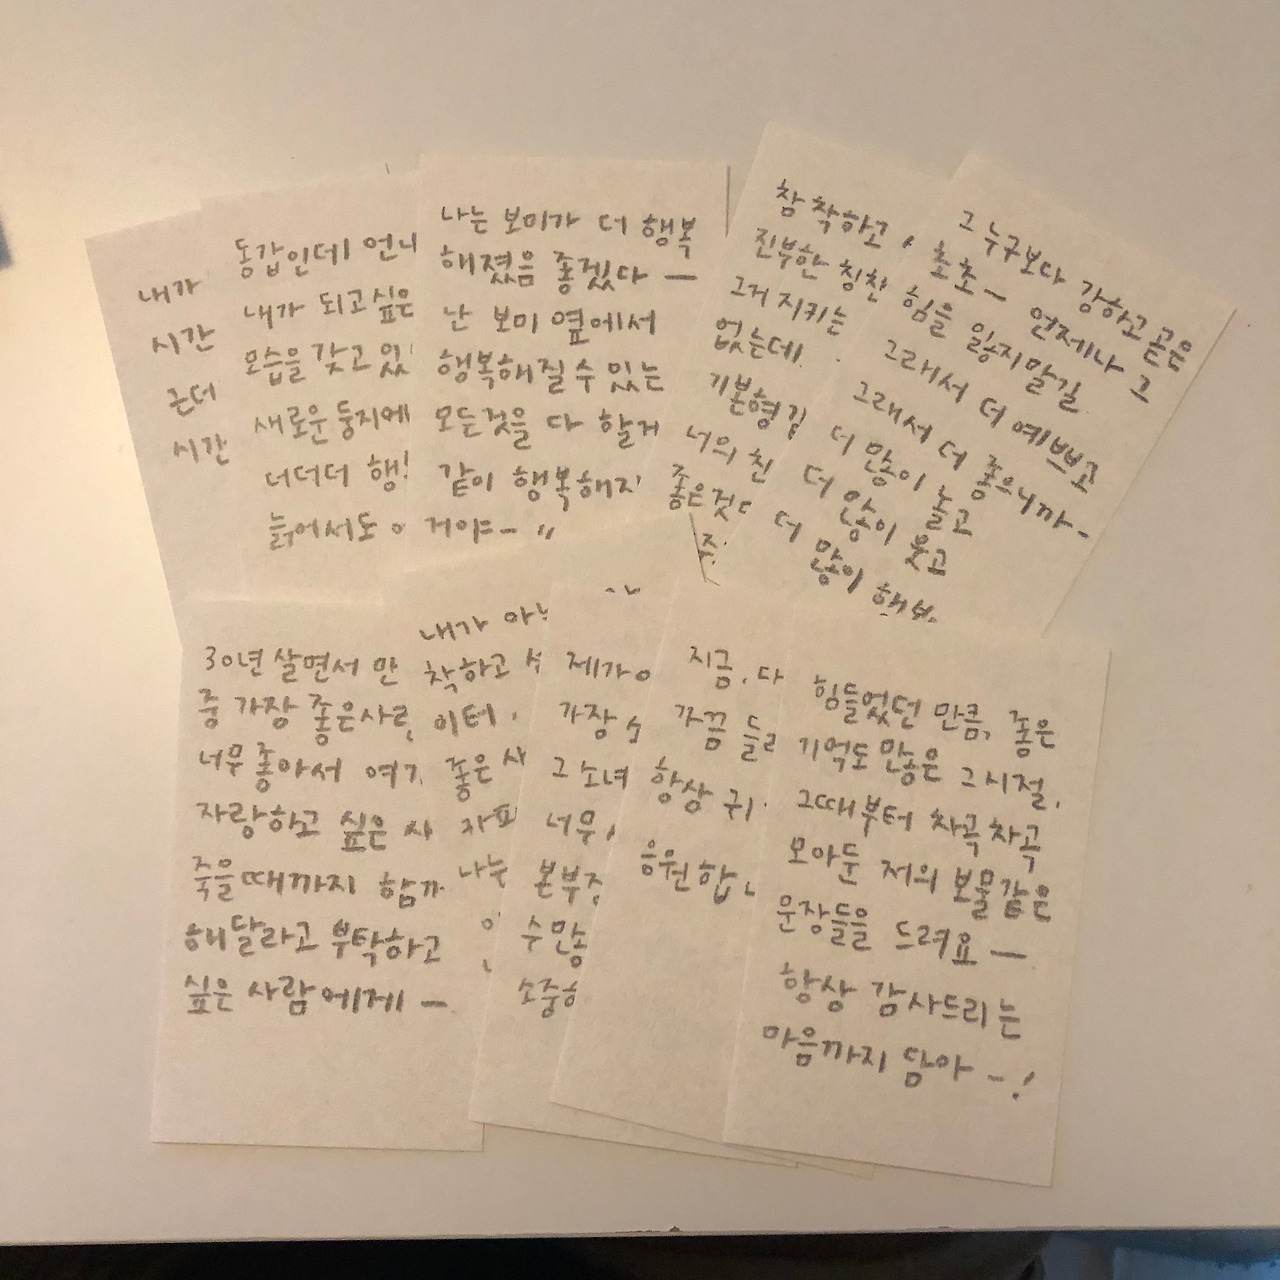 내가
시간
근데
시간
동갑인데 언니
내가 되고싶은
모습을 갖고
새로운 둥지에
더더더
늙어서도
나는 보미가 더 행복
해졌음 좋겠다 ㅡ
난 보미 옆에서
행복해질수 있는
모든것을 다 할거
같이 행복해지
거야-
참 착하고
진부한 칭찬
그거 지키는
없는데
기본형
너의 친
좋은것
그 누구보다 강하고 곧은
초초ㅡ 언제나 그
힘을 잃지말길
그래서 더 예쁘고
그래서 더 좋으니까-
더 많이 놀고
더 많이 웃고
더 많이
30년 살면서 만
중 가장 좋은사람
너무 좋아서 여기
자랑하고 싶은 사
죽을때까지 함께
해달라고 부탁하고
싶은 사람에게 ㅡ
내가 아는
착하고
이터
좋은 사
나는
제가
가장
그 소녀
너무
본부장
수많
소중
지금, 다
가끔 들
항상
응원합니
힘들었던 만큼, 좋은
기억도 많은 그시절,
그때부터 차곡차곡
모아둔 저의 보물같은
문장들을 드려요 ㅡ
항상 감사드리는
마음까지 담아 -!